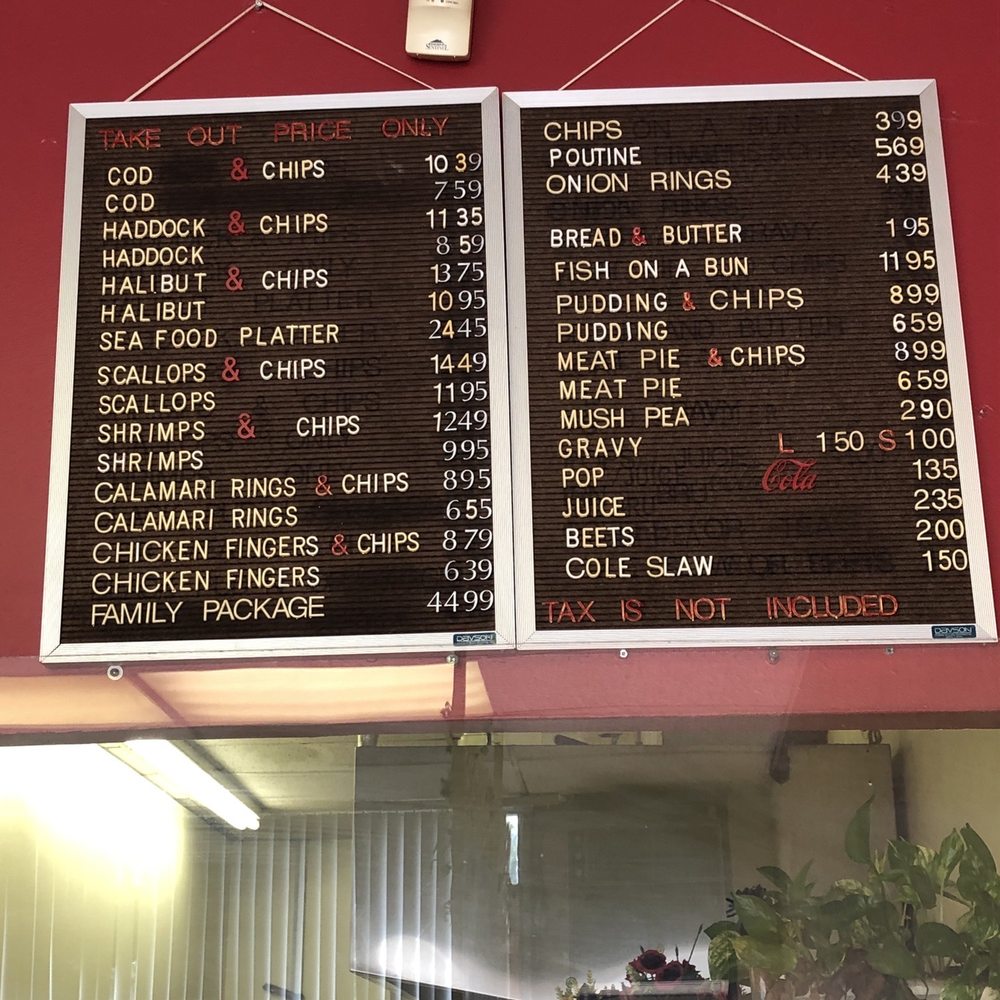 SENTINEL
TAKE OUT PRICE ONLY
COD & CHIPS 10 39
COD 7 59
HADDOCK & CHIPS 11 35
HADDOCK 8 59
HALIBUT & CHIPS 13 75
HALIBUT 10 95
SEA FOOD PLATTER 24 45
SCALLOPS & CHIPS 14 49
SCALLOPS 11 95
SHRIMPS & CHIPS 12 49
SHRIMPS 9 95
CALAMARI RINGS & CHIPS 8 95
CALAMARI RINGS 6 55
CHICKEN FINGERS & CHIPS 8 79
CHICKEN FINGERS 6 39
FAMILY PACKAGE 44 99
DAVSON
CHIPS 3 99
POUTINE 5 69
ONION RINGS 4 39
BREAD & BUTTER 1 95
FISH ON A BUN 11 95
PUDDING & CHIPS 8 99
PUDDING 6 59
MEAT PIE & CHIPS 8 99
MEAT PIE 6 59
MUSH PEA 2 90
GRAVY L 1 50 S 1 00
POP Coca-Cola 1 35
JUICE 2 35
BEETS 2 00
COLE SLAW 1 50
TAX IS NOT INCLUDED
DAVSON